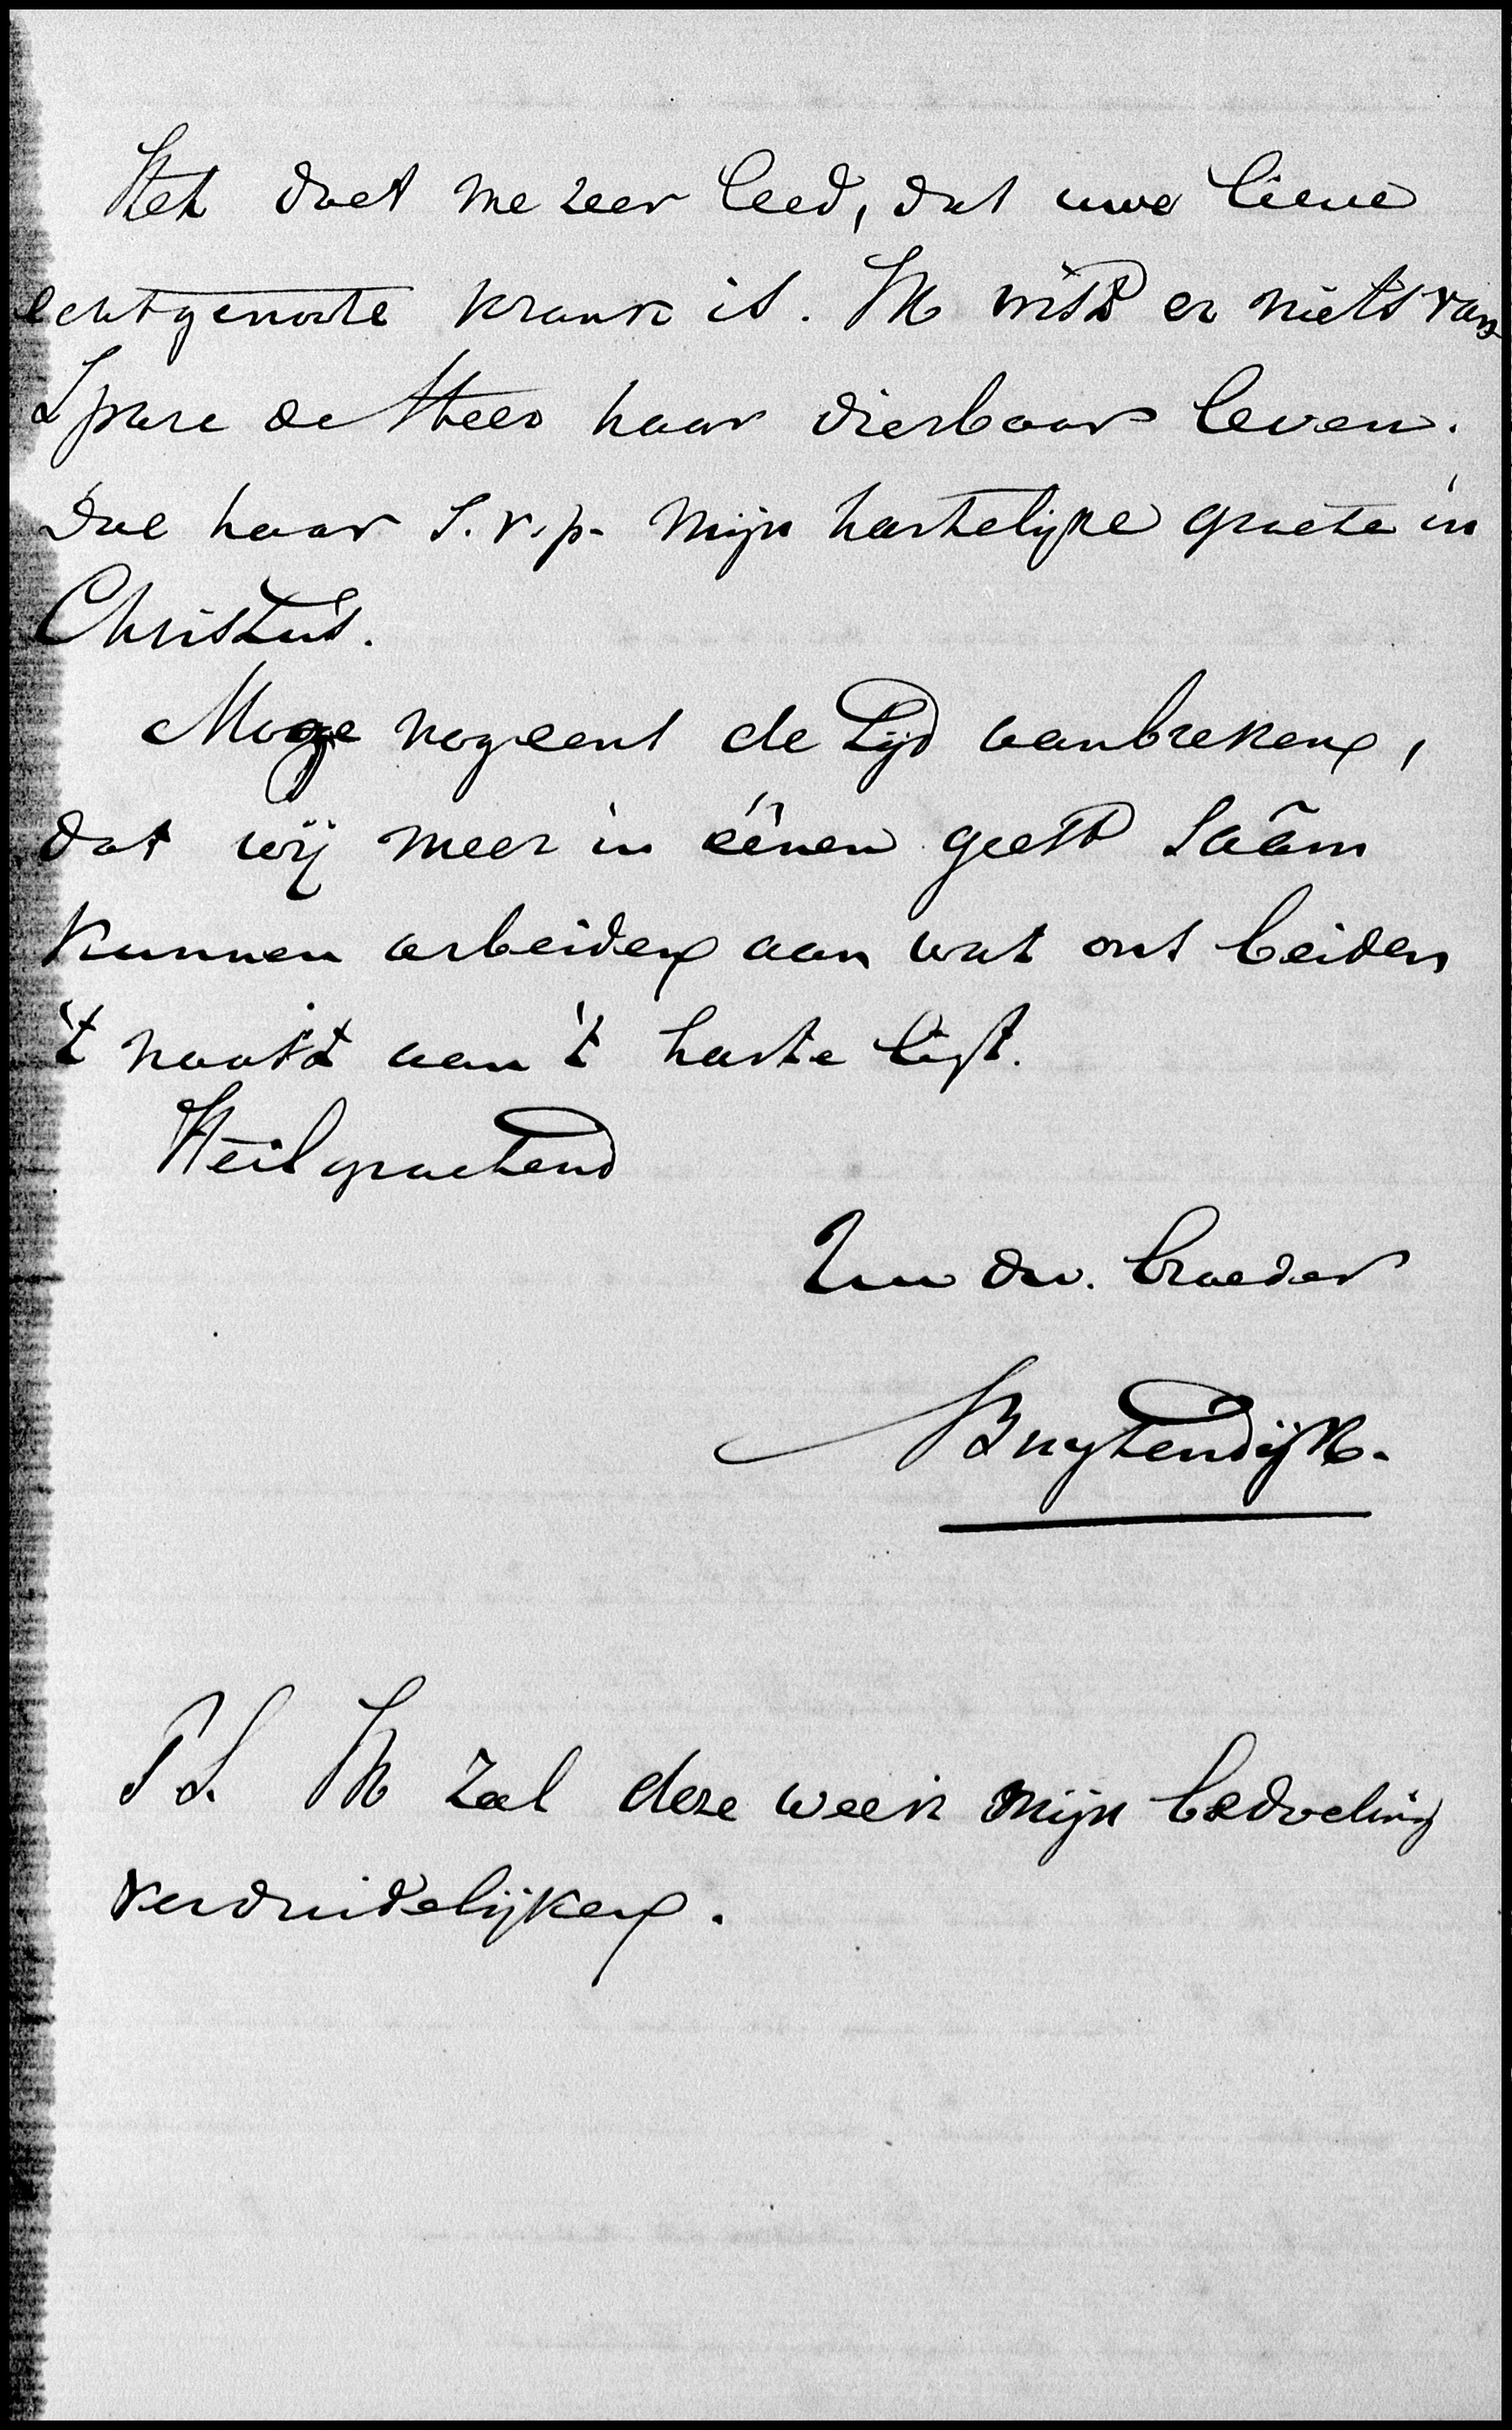 Het doet me zeer leed, dat uwe lieve
echtgenoote krank is. Ik wist er niets van
Spare de Heer haar dierbaar leven.
Doe haar s.v.p. mijn hartelijke groete in
Christus.
Moge nog eens de tijd aanbreken,
dat wij meer in éénen geest saâm
kunnen arbeiden aan wat ons beiden
't naast aan 't harte ligt.
Heilgroetend
Uw dw. broeder
Buytendijk.
P.S. Ik zal deze week mijn bedoeling
verduidelijken.